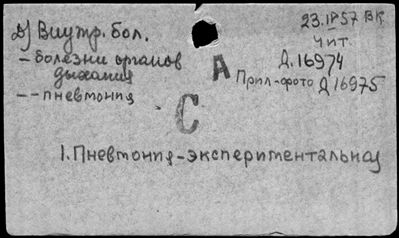 Д) Внутр. бол.
– болезни органов
дыхания
– – пневмония
23.IV 57 ВК
Чит.
Д.16974
Прил-фото Д 16975
А
С
1. Пневмония – экспериментальная